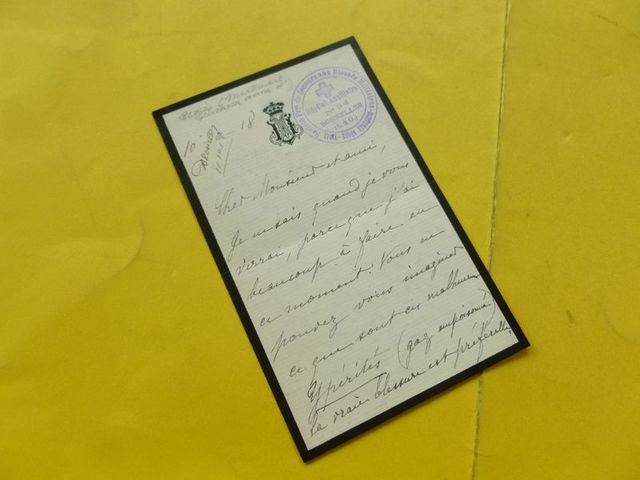 18
Cher Monsieur et ami,
Je ne sais quand je vous
verrai, parce que j'ai
beaucoup à faire en
ce moment. Vous ne
pouvez vous imaginer
ce que sont ces malheureux
Ypérités (gaz empoisonné)
la vraie blessure est préférable,
Hôpital Auxiliaire